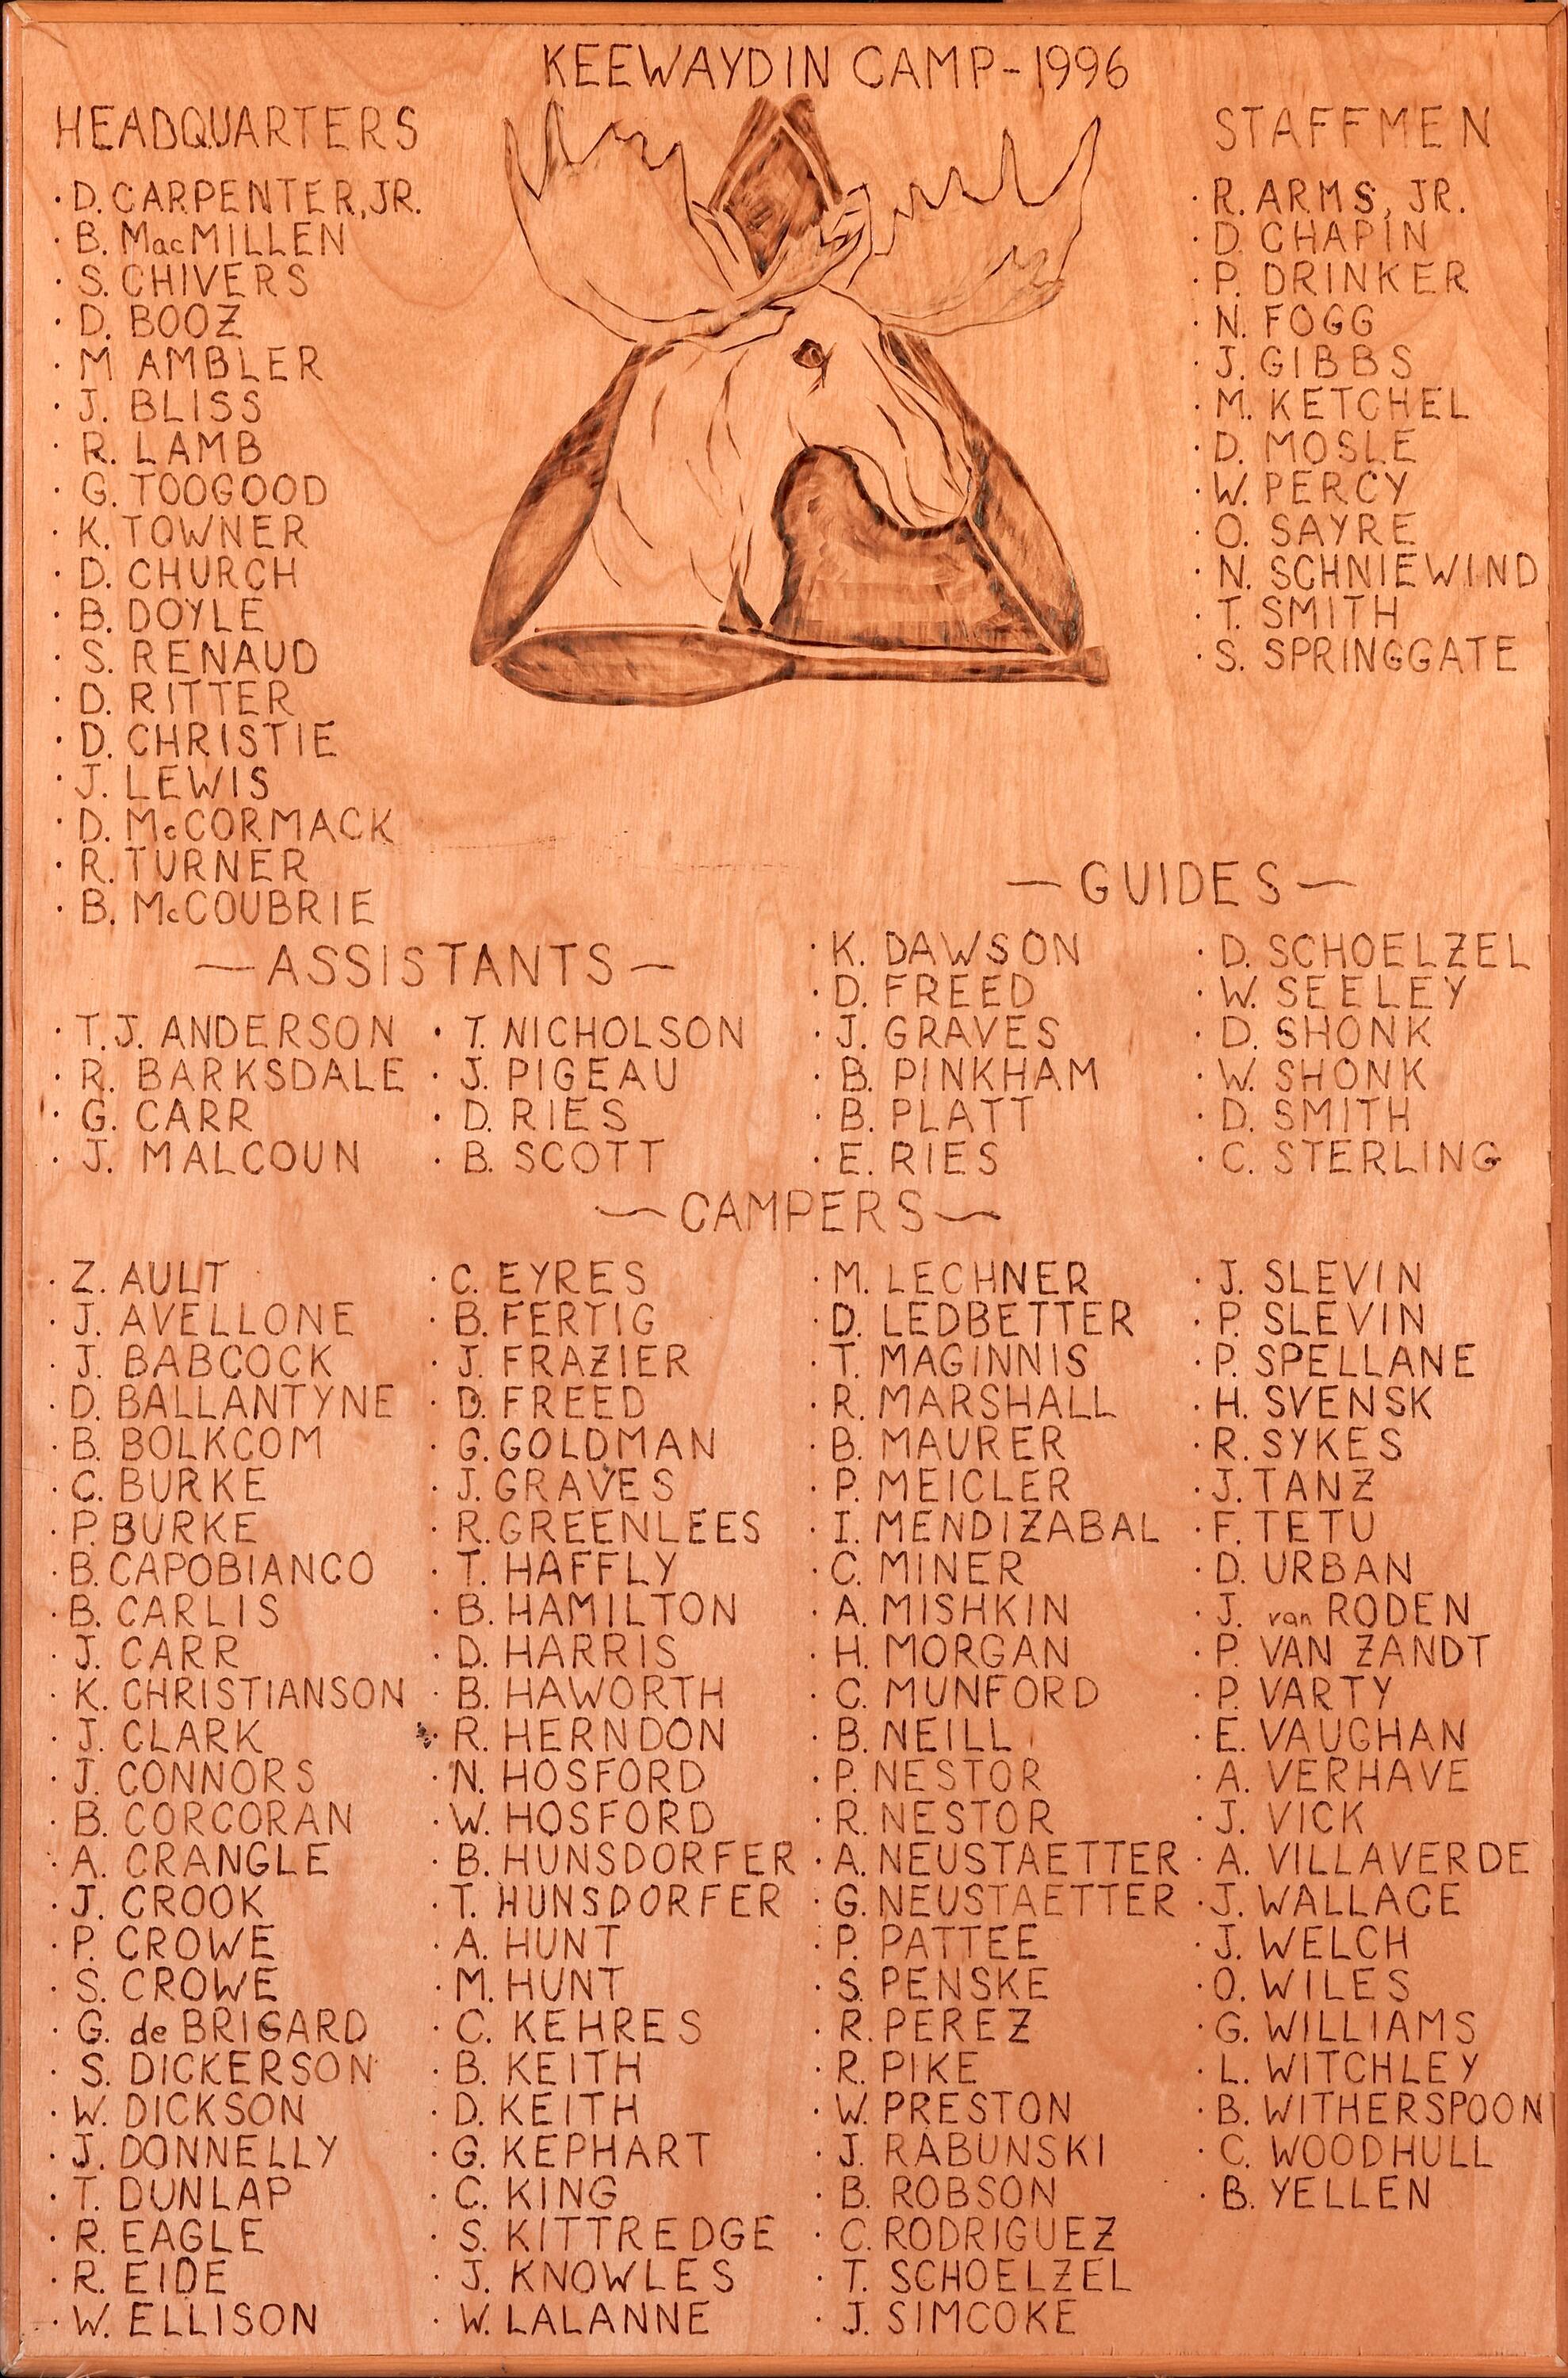 KEEWAYDIN CAMP-1996
HEADQUARTERS
· D. CARPENTER, JR.
· B. MacMILLEN
· S. CHIVERS
· D. BOOZ
· M AMBLER
· J. BLISS
· R. LAMB
· G. TOOGOOD
· K. TOWNER
· D. CHURCH
· B. DOYLE
· S. RENAUD
· D. RITTER
· D. CHRISTIE
· J. LEWIS
· D. McCORMACK
· R. TURNER
· B. McCOUBRIE
STAFFMEN
· R. ARMS, JR.
· D. CHAPIN
· P. DRINKER
· N. FOGG
· J. GIBBS
· M. KETCHEL
· D. MOSLE
· W. PERCY
· O. SAYRE
· N. SCHNIEWIND
· T. SMITH
· S. SPRINGGATE
—ASSISTANTS—
· T.J. ANDERSON
· R. BARKSDALE
· G. CARR
· J. MALCOUN
· T. NICHOLSON
· J. PIGEAU
· D. RIES
· B. SCOTT
—GUIDES—
· K. DAWSON
· D. FREED
· J. GRAVES
· B. PINKHAM
· B. PLATT
· E. RIES
· D. SCHOELZEL
· W. SEELEY
· D. SHONK
· W. SHONK
· D. SMITH
· C. STERLING
—CAMPERS—
· Z. AULT
· J. AVELLONE
· J. BABCOCK
· D. BALLANTYNE
· B. BOLKCOM
· C. BURKE
· P. BURKE
· B. CAPOBIANCO
· B. CARLIS
· J. CARR
· K. CHRISTIANSON
· J. CLARK
· J. CONNORS
· B. CORCORAN
· A. CRANGLE
· J. CROOK
· P. CROWE
· S. CROWE
· G. de BRIGARD
· S. DICKERSON
· W. DICKSON
· J. DONNELLY
· T. DUNLAP
· R. EAGLE
· R. EIDE
· W. ELLISON
· C. EYRES
· B. FERTIG
· J. FRAZIER
· D. FREED
· G. GOLDMAN
· J. GRAVES
· R. GREENLEES
· T. HAFFLY
· B. HAMILTON
· D. HARRIS
· B. HAWORTH
· R. HERNDON
· N. HOSFORD
· W. HOSFORD
· B. HUNSDORFER
· T. HUNSDORFER
· A. HUNT
· M. HUNT
· C. KEHRES
· B. KEITH
· D. KEITH
· G. KEPHART
· C. KING
· S. KITTREDGE
· J. KNOWLES
· W. LALANNE
· M. LECHNER
· D. LEDBETTER
· T. MAGINNIS
· R. MARSHALL
· B. MAURER
· P. MEICLER
· I. MENDIZABAL
· C. MINER
· A. MISHKIN
· H. MORGAN
· C. MUNFORD
· B. NEILL
· P. NESTOR
· R. NESTOR
· A. NEUSTAETTER
· G. NEUSTAETTER
· P. PATTEE
· S. PENSKE
· R. PEREZ
· R. PIKE
· W. PRESTON
· J. RABUNSKI
· B. ROBSON
· C. RODRIGUEZ
· T. SCHOELZEL
· J. SIMCOKE
· J. SLEVIN
· P. SLEVIN
· P. SPELLANE
· H. SVENSK
· R. SYKES
· J. TANZ
· F. TETU
· D. URBAN
· J. van RODEN
· P. VAN ZANDT
· P. VARTY
· E. VAUGHAN
· A. VERHAVE
· J. VICK
· A. VILLAVERDE
· J. WALLACE
· J. WELCH
· O. WILES
· G. WILLIAMS
· L. WITCHLEY
· B. WITHERSPOON
· C. WOODHULL
· B. YELLEN